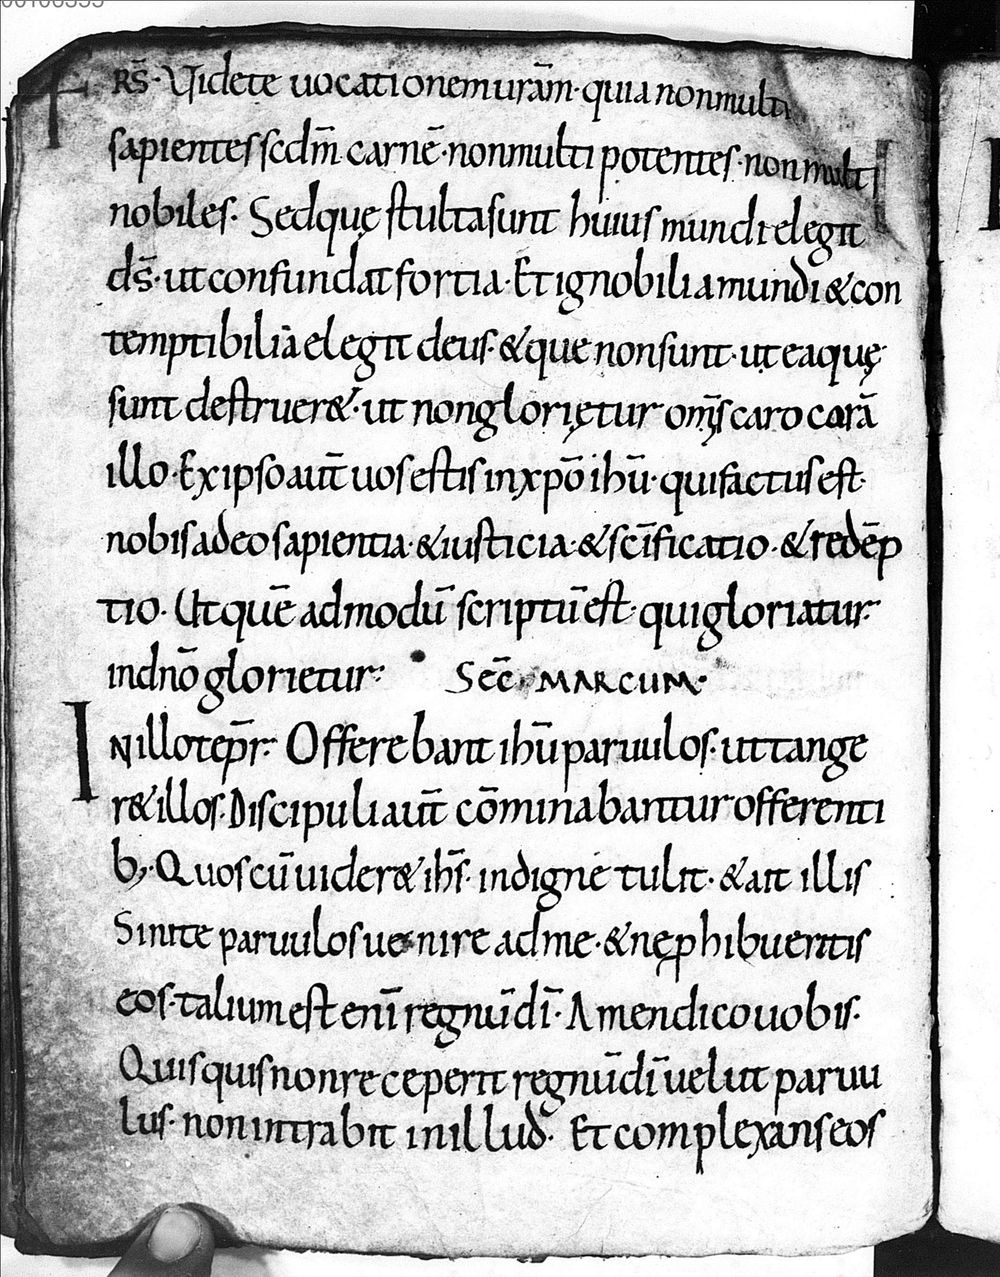 FRS̄· Videte uocationem urām· quia non multi
sapientes scdm̄ carnē· non multi potentes· non multi
nobiles· Sed quę stulta sunt huius mundi elegit
ds̄· ut confundat fortia· Et ignobilia mundi & con
temptibilia elegit deus· & que non sunt· ut ea quę
sunt destruer&· ut non gloriętur om̄s caro corā
illo· Ex ipso aut̄ uos estis in xpō ihū· qui factus est
nobis a deo sapientia· & iusticia· & sc̄ificatio· & redēp
tio· Ut quē admodū scriptū est· qui gloriatur·
in dnō glorietur· Sēc MARCUM·
IN illo tep̄r· Offerebant ihū paruulos· ut tange
r& illos· Discipuli aut̄ cōminabantur offerenti
b;· Quos cū uider& ihs̄· indigne tulit· & ait illis
Sinite paruulos uenire ad me· & ne ꝓhibueritis
eos· talium est eni̅ regnū dī· Amen dico uobis·
Quisquis non receperit regnū dī uelut paruu
lus· non intrabit in illud· Et complexans eos